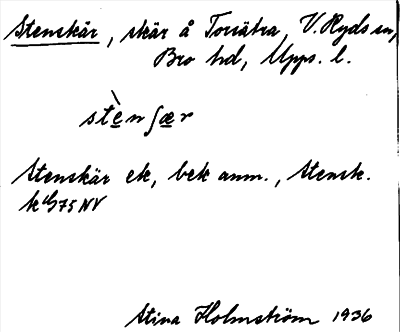 Stenskär, skär å Torsätra, V. Ryds sn,
Bro hd, Upps. l.
stènʃær
Stenskär ek, bek anm., Stensk.
Stina Holmström 1936